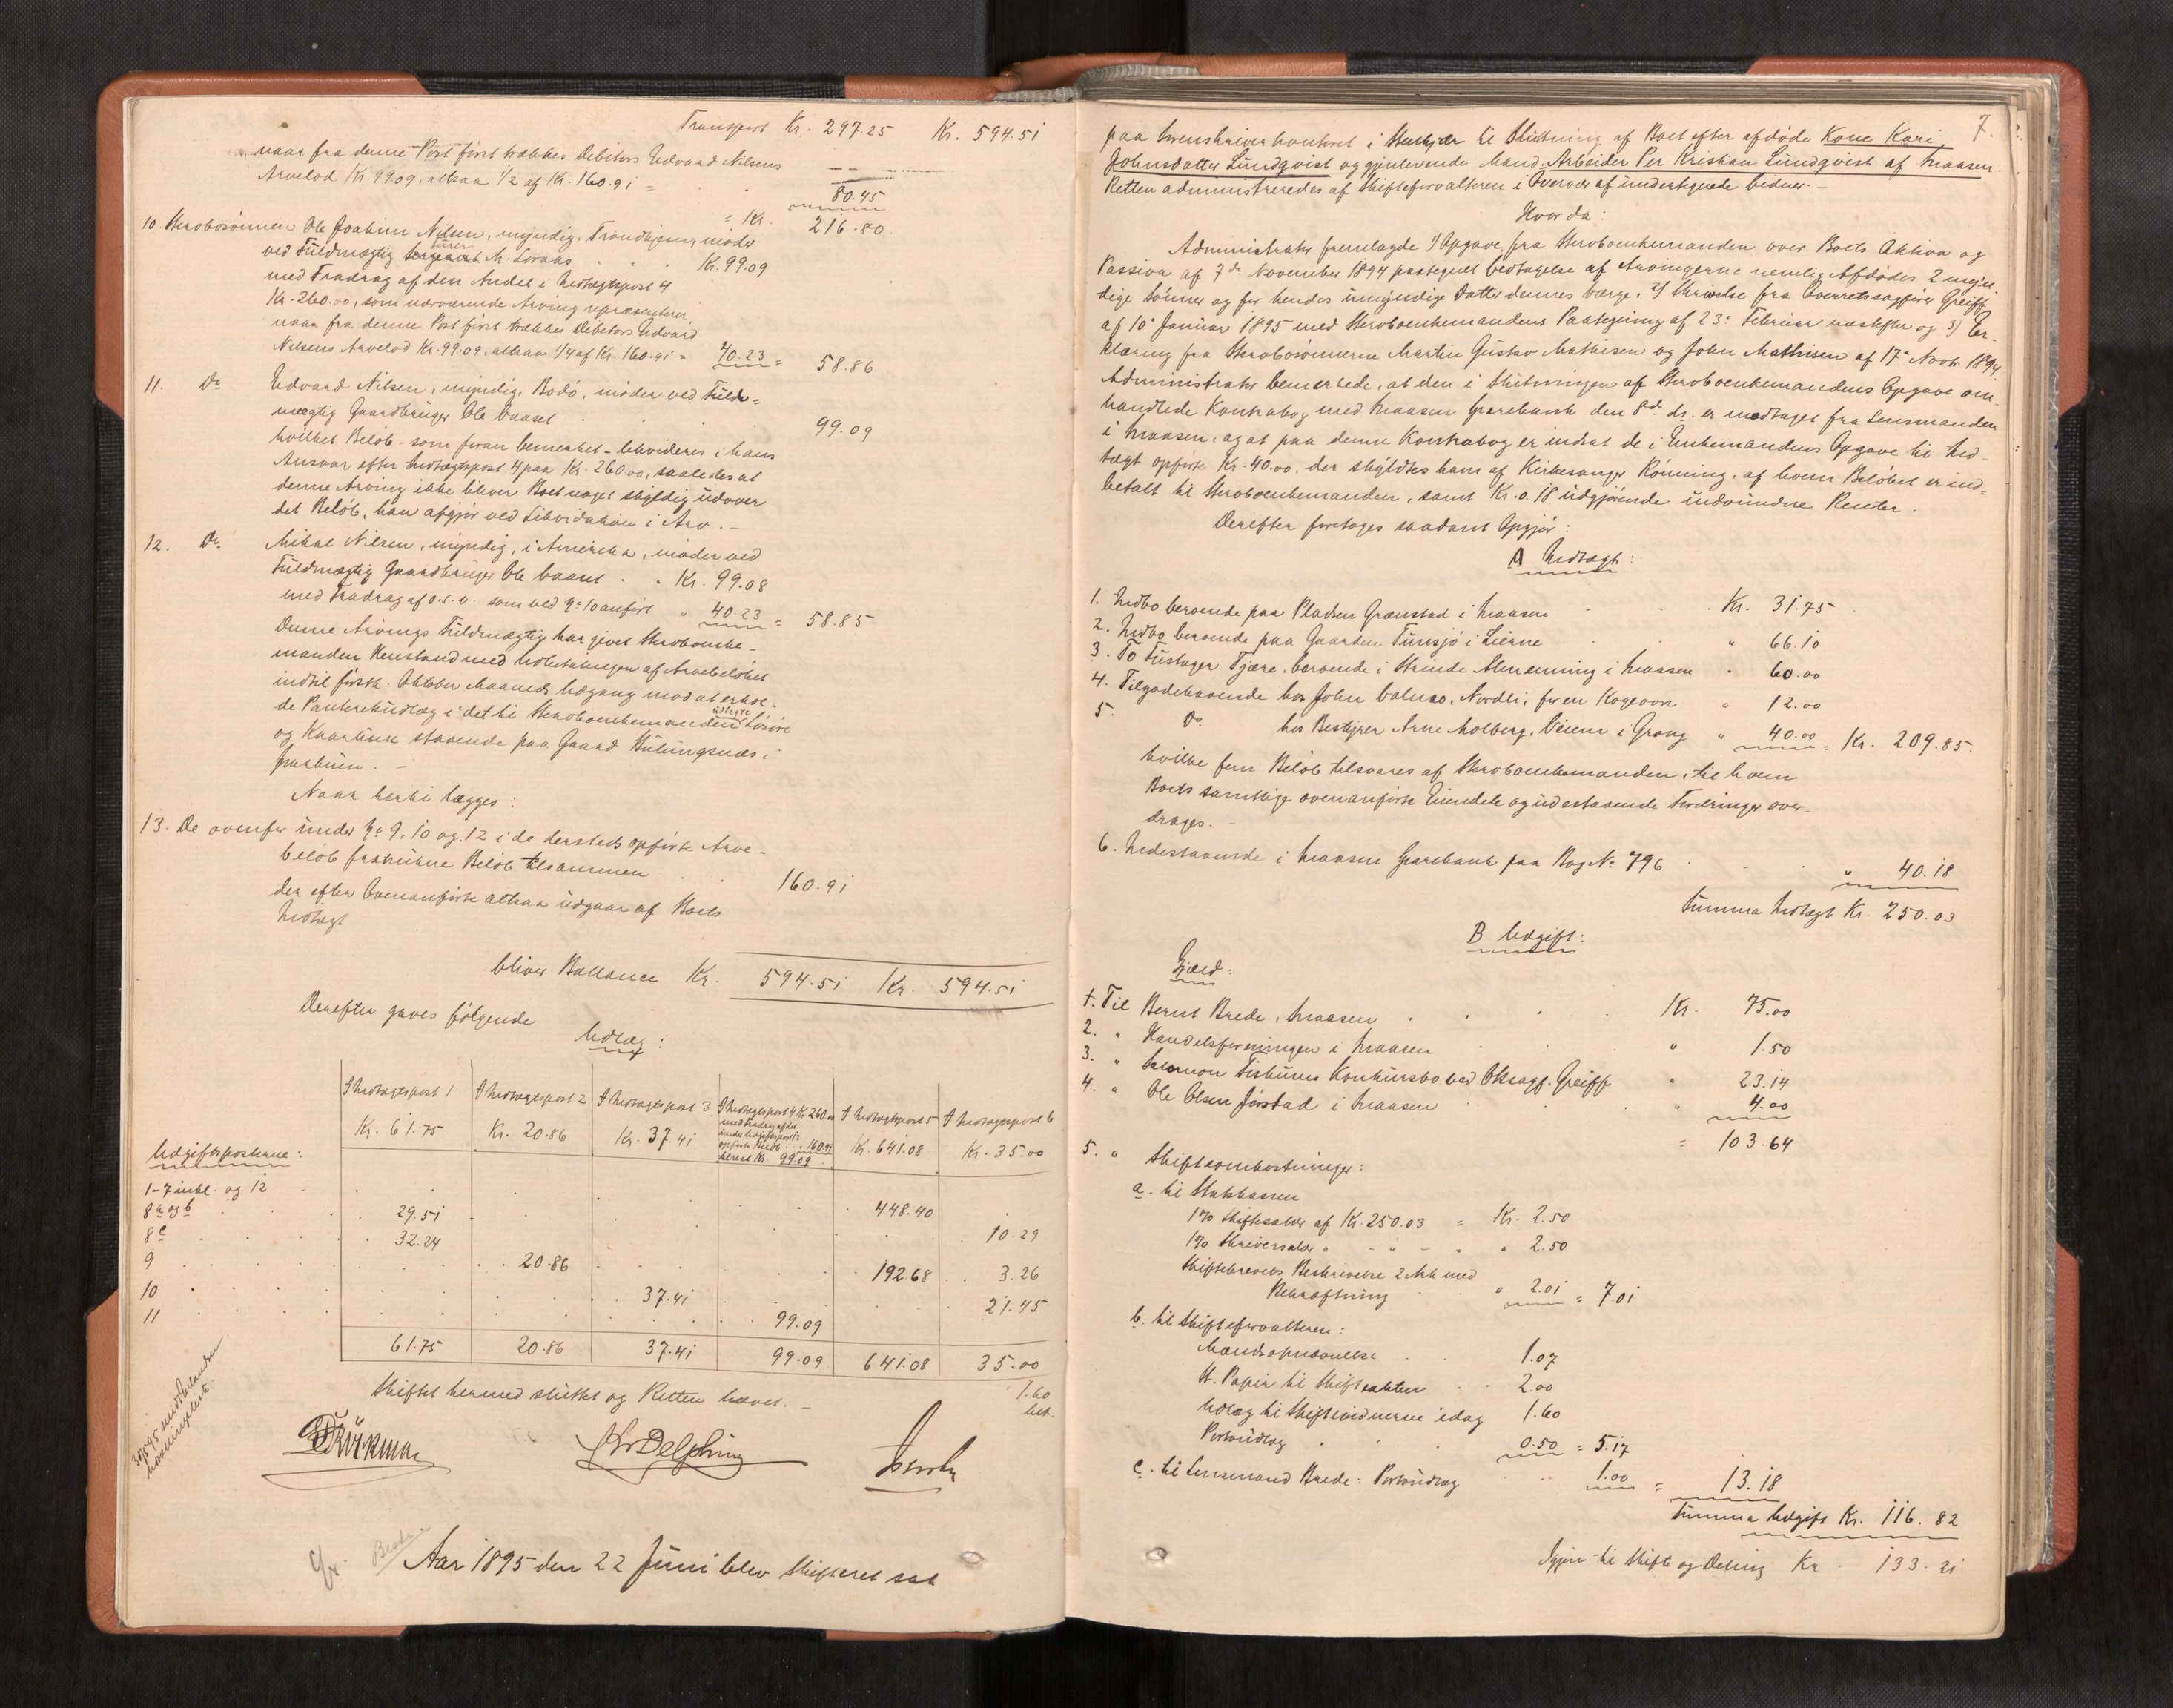 Transport Kr. 297.25 Kr. 594.51
naar fra denne Post først trækkes Debitors Edvard Nilsens
Arvelod Kr. 99.09, altsaa 1/2 af Kr. 160.91 = 80.45
= Kr. 216.80
10. Sterbosønnen Ole Joakim Nilsen, myndig, Trondhjem, møder
ved Fuldmægtig M. Kr. 99.09
med Fradrag af den Andel i Indtægtspost 4
Kr. 260.00, som nærværende Arving repræsenterer,
naar fra denne Post først trækkes Debitors Edvard
Nilsens Arvelod Kr. 99.09, altsaa 1/4 af Kr. 160.91 = 40.23 = 58.86
11. Do Edvard Nilsen, myndig, Bodø, møder ved Fuld=
mægtig Gaardbruger Ole 99.09
hvilket Beløb - som foran bemerket - likvideres i hans
Ansvar efter Indtægtspost 4 paa Kr. 260.00, saaledes at
denne Arving ikke bliver Boet noget skyldig udover
det Beløb, han afgjør ved Likvidation i Arv. -
12. Do Mikal Nilsen, myndig, i Amerika, møder ved
Fuldmægtig Gaardbruger Ole Kr. 99.08
med Fradrag af o.s.v. som ved No 10 anført " 40.23 = 58.85
Denne Arvings Fuldmægtig har givet Sterboenke-
manden Henstand med Udbetalingen af Arvebeløbet
indtil førstk. Oktober Maaneds Udgang mod at erhol-
de Panteretudlæg i det til Sterboenkemanden udlagte Løsøre
og Huse staaende paa Gaard i
Sparbuen. -
Naar hertil lægges:
13. De ovenfor under No 9, 10 og 12 i de dersteds opførte Arve-
beløb fratrukne Beløb tilsammen 160.91
der efter Ovenanførte altsaa udgaar af Boets
Indtægt
bliver Ballance Kr. 594.51 Kr. 594.51
Derefter gaves følgende
Udlæg:
I Indtægtspost 1 I Indtægtspost 2 I Indtægtspost 3 I Indtægtspost 4 Kr. 260.00 I Indtægtspost 5 I Indtægtspost 6
med Fradrag af det
under Udgiftspost 13
opførte Beløb 160.91
Kr. 61.75 Kr. 20.86 Kr. 37.41 Kr. 99.09 Kr. 641.08 Kr. 35.00
Udgiftsposterne:
1-7 inkl. og 12 448.40
8 a og b 29.51 10.29
8 c 32.24
9 20.86 192.68 3.26
10 37.41 21.45
11 99.09
61.75 20.86 37.41 99.09 641.08 35.00
Skiftet hermed sluttet og Retten hævet. -
1.60
bet.
Kr Delphin
Aar 1895 den 22 Juni blev Skifteret sat
7.
paa Sorenskriverkontoret i Stenkjær til Slutning af Boet efter afdøde Kone Kari
Johnsdatter Lundqvist og gjenlevende Mand, Arbeider Per Kristian Lundqvist af Snaasen.
Retten administreredes af Skifteforvalteren i Overvær af undertegnede Vidner. -
Hvorda:
Administrator fremlagde 1) Opgave fra Sterboenkemanden over Boets Aktiva og
Passiva af 7de November 1894 paategnet Vedtagelse af Arvingerne nemlig Afdødes 2 myn-
dige Sønner og for hendes umyndige Datter dennes Værge, 2) Skrivelse fra Overretssagfører Greiff
af 10de Januar 1895 med Sterboenkemandens Paategning af 23de Februar næstefter og 3) Er-
klæring fra Sterbosønnerne Martin Gustav Mathisen og John Mathisen af 17de Novbr 1894.
Administrator bemerkede, at den i Slutningen af Sterboenkemandens Opgave om-
handlede Kontrabog med Snaasen Sparebank den 8de ds. er modtaget fra Lensmanden
i Snaasen, og at paa denne Kontrabog er indsat de i Enkemandens Opgave til Ind-
tægt opførte Kr. 40.00, der skyldtes ham af Kirkesanger Rønning, af hvem Beløbet er ind-
betalt til Sterboenkemanden, samt Kr. 0.18 udgjørende indvundne Renter.
Derefter foretoges saadant Opgjør:
A Indtægt:
1. Indbo beroende paa Pladsen Grønstad i Snaasen Kr. 31.75
2. Indbo beroende paa Gaarden Tunsjø i Lierne " 66.10
3. To Fustager Tjære, beroende i Strinde Almenning i Snaasen " 60.00
4. Tilgodehavende hos John, Nordli, for en Kogeovn " 12.00
5. Do hos Bestyrer Arne Holberg, Veiem i Grong " 40.00 = Kr. 209.85.
hvilke fem Beløb tilsvares af Sterboenkemanden, til hvem
Boets samtlige ovenanførte Eiendele og udestaaende Fordringer over-
drages. -
6. Indestaaende i Snaasen Sparebank paa Bog No 796 " 40.18
Summa Indtægt Kr. 250.03
B Udgift:
Gjæld:
1. Til Bernt Brede, Snaasen Kr. 75.00
2. " Handelsforeningen i Snaasen " 1.50
3. " Salomon Konkursbo ved Oksagf. Greiff " 23.14
4. " Ole Olsen Jørstad i Snaasen " 4.00
= 103.64
5. " Skifteomkostninger:
a. til Statskassen
1% Skiftesalær af Kr. 250.03 = Kr. 2.50
1% Skriversalær " - " - " " 2.50
Skiftebrevets Beskrivelse 2 Ark med
Bekræftning " 2.01 = 7.01
b. til Skifteforvalteren:
Mandsopnævnelse 1.07
St. Papir til Skifteakten 2.00
Udlæg til Skiftevidnerne idag 1.60
Portoudlæg 0.50 = 5.17
c. til Lensmand Brede: Portoudlæg 1.00 = 13.18
Summa Udgift Kr. 116.82
Igjen til Skifte og Deling Kr. 133.21